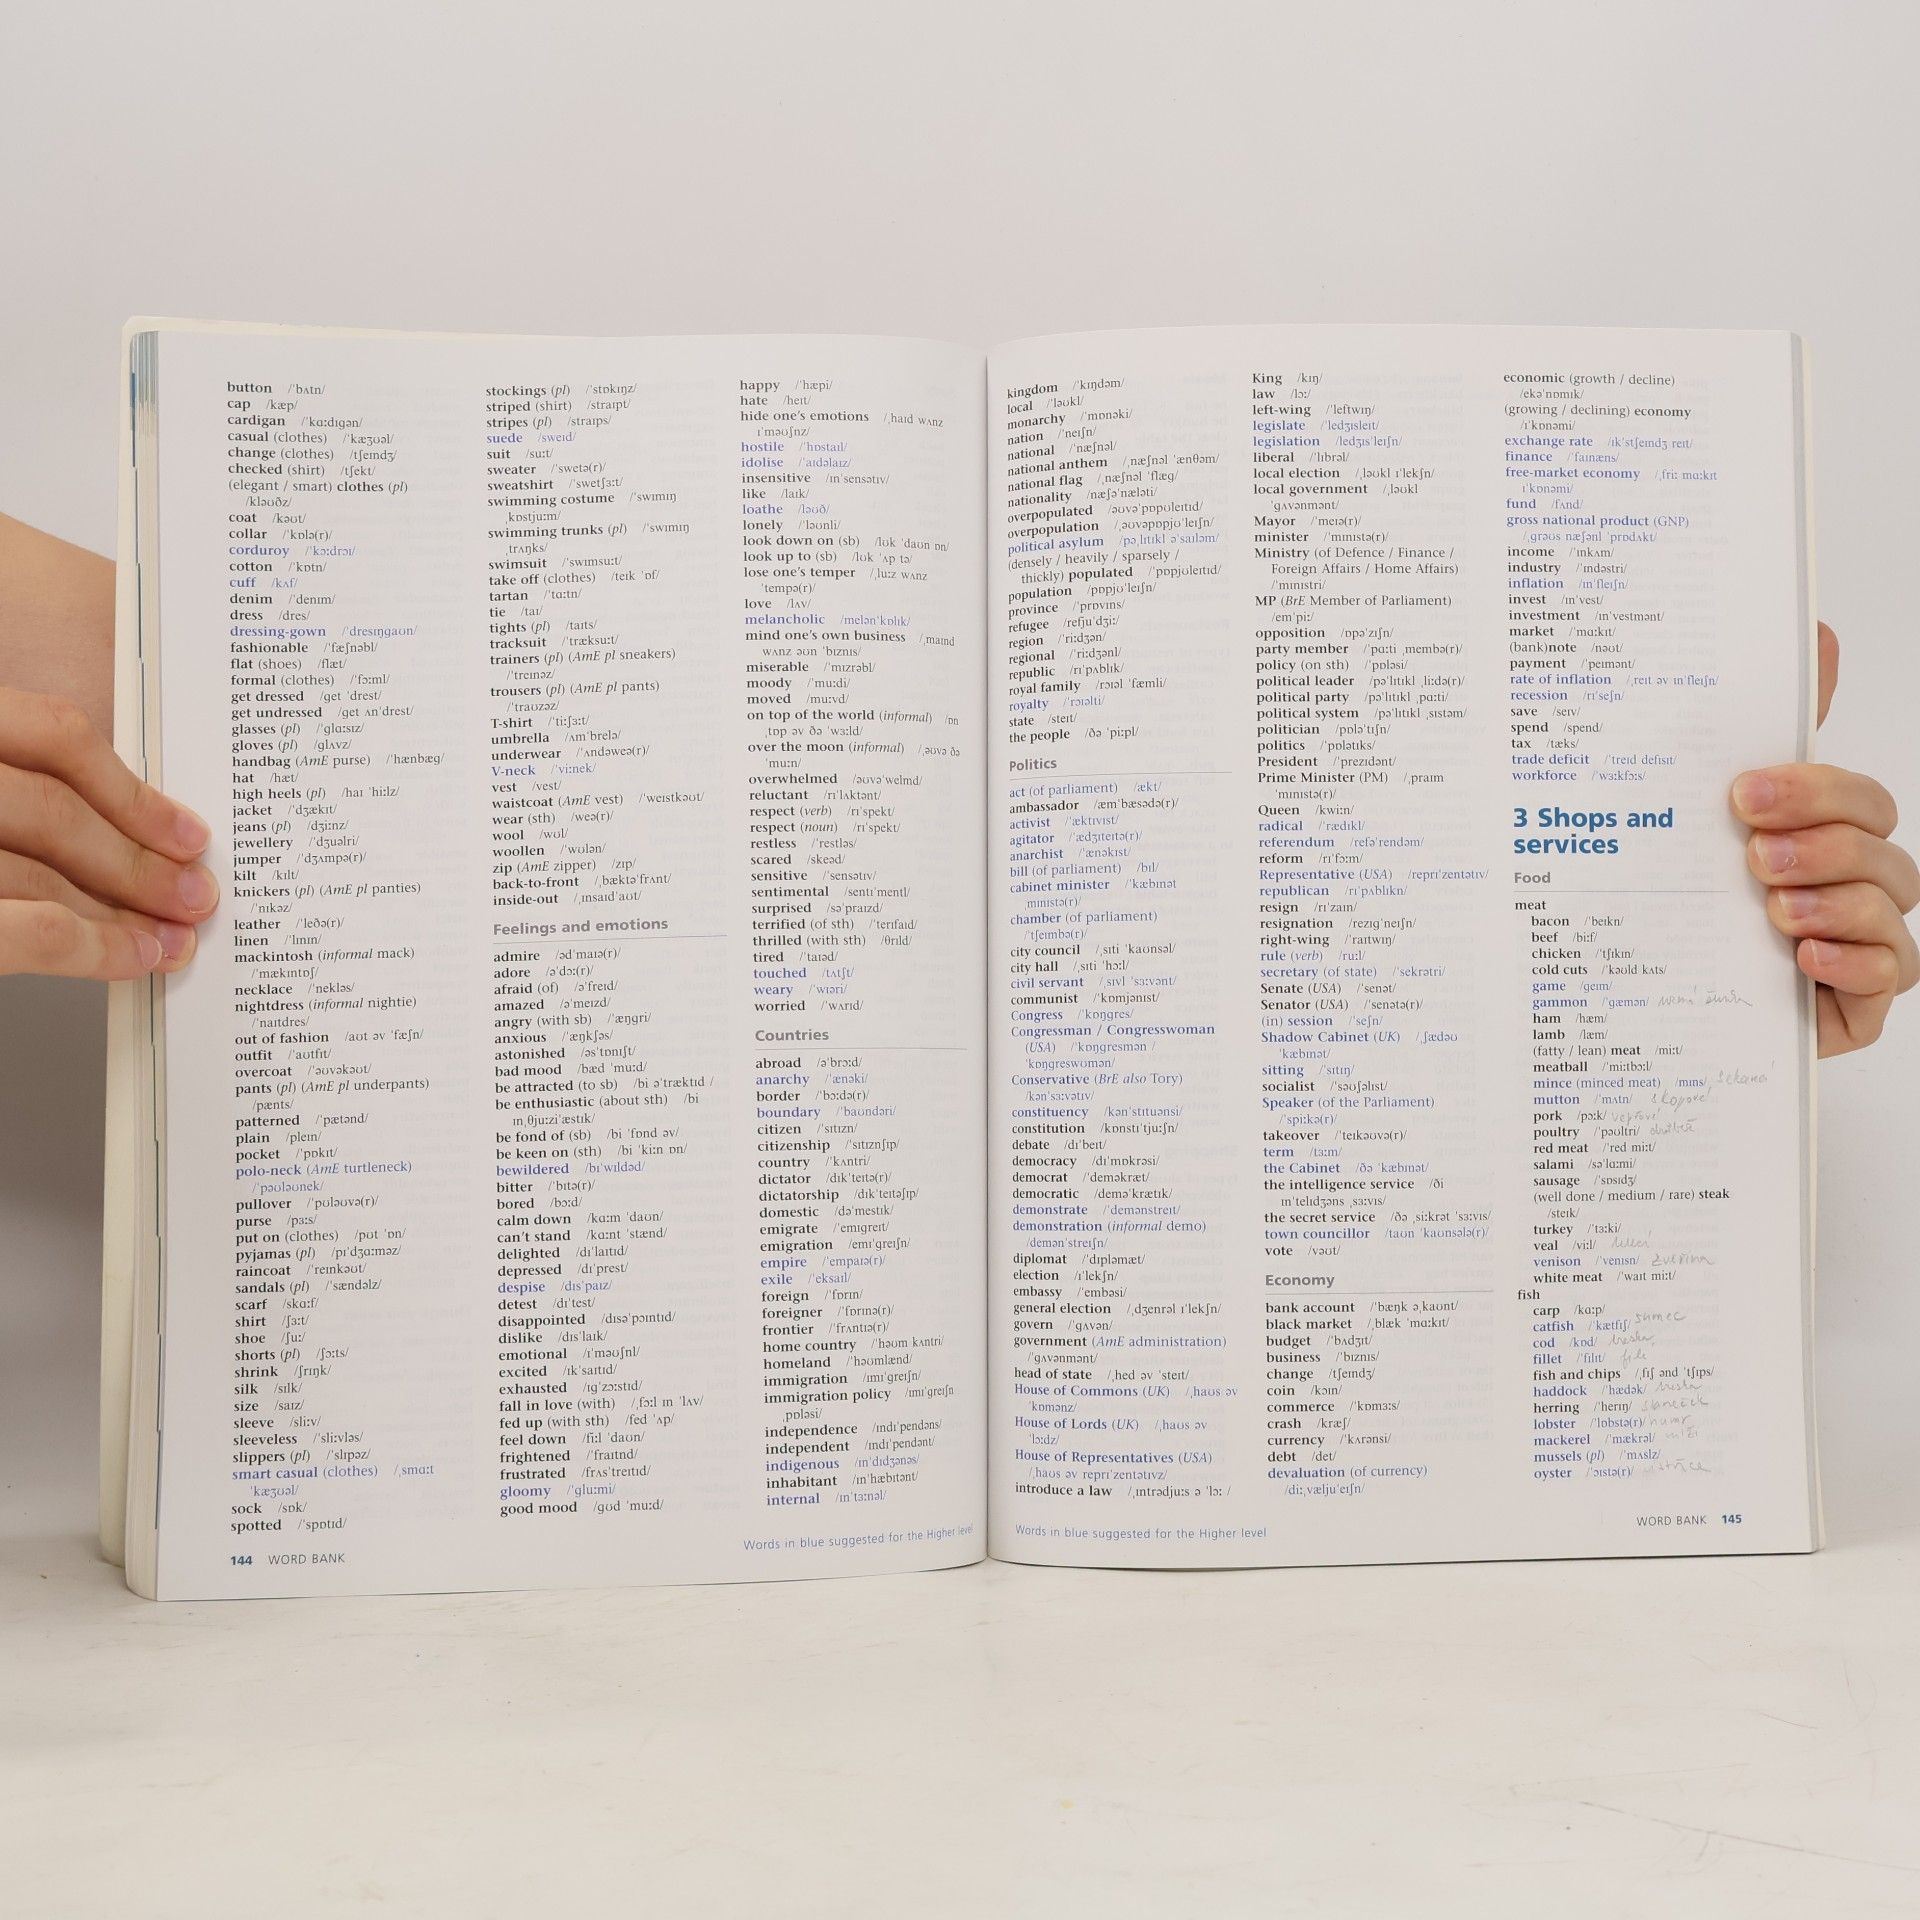 button /ˈbʌtn/
cap /kæp/
cardigan /ˈkɑːdɪɡən/
casual (clothes) /ˈkæʒʊəl/
change (clothes) /tʃeɪndʒ/
checked (shirt) /tʃekt/
(elegant / smart) clothes (pl)
/kləʊðz/
coat /kəʊt/
collar /ˈkɒlə(r)/
corduroy /ˈkɔːdrɔɪ/
cotton /ˈkɒtn/
cuff /kʌf/
denim /ˈdenɪm/
dress /dres/
dressing-gown /ˈdresɪŋɡaʊn/
fashionable /ˈfæʃnəbl/
flat (shoes) /flæt/
formal (clothes) /ˈfɔːml/
get dressed /ɡet ˈdrest/
get undressed /ɡet ʌnˈdrest/
glasses (pl) /ˈɡlɑːsɪz/
gloves (pl) /ɡlʌvz/
handbag (AmE purse) /ˈhænbæɡ/
hat /hæt/
high heels (pl) /haɪ ˈhiːlz/
jacket /ˈdʒækɪt/
jeans (pl) /dʒiːnz/
jewellery /ˈdʒuəlri/
jumper /ˈdʒʌmpə(r)/
kilt /kɪlt/
knickers (pl) (AmE pl panties)
/ˈnɪkəz/
leather /ˈleðə(r)/
linen /ˈlɪnɪn/
mackintosh (informal mack)
/ˈmækɪntɒʃ/
necklace /ˈnekləs/
nightdress (informal nightie)
/ˈnaɪtdres/
out of fashion /aʊt əv ˈfæʃn/
outfit /ˈaʊtfɪt/
overcoat /ˈəʊvəkəʊt/
pants (pl) (AmE pl underpants)
/pænts/
patterned /ˈpætənd/
plain /pleɪn/
pocket /ˈpɒkɪt/
polo-neck (AmE turtleneck)
/ˈpəʊləʊnek/
pullover /ˈpʊləʊvə(r)/
purse /pɜːs/
put on (clothes) /pʊt ˈɒn/
pyjamas (pl) /pɪˈdʒɑːməz/
raincoat /ˈreɪnkəʊt/
sandals (pl) /ˈsændəlz/
scarf /skɑːf/
shirt /ʃɜːt/
shoe /ʃuː/
shorts (pl) /ʃɔːts/
shrink /ʃrɪŋk/
silk /sɪlk/
size /saɪz/
sleeve /sliːv/
sleeveless /ˈsliːvləs/
slippers (pl) /ˈslɪpəz/
smart casual (clothes) /ˌsmɑːt
ˈkæʒʊəl/
sock /sɒk/
spotted /ˈspɒtɪd/
stockings (pl) /ˈstɒkɪŋz/
striped (shirt) /straɪpt/
stripes (pl) /straɪps/
suede /sweɪd/
suit /suːt/
sweater /ˈswetə(r)/
sweatshirt /ˈswetʃɜːt/
swimming costume /ˈswɪmɪŋ
ˌkɒstjuːm/
swimming trunks (pl) /ˈswɪmɪŋ
ˌtrʌŋks/
swimsuit /ˈswɪmsuːt/
take off (clothes) /teɪk ˈɒf/
tartan /ˈtɑːtn/
tie /taɪ/
tights (pl) /taɪts/
tracksuit /ˈtræksuːt/
trainers (pl) (AmE pl sneakers)
/ˈtreɪnəz/
trousers (pl) (AmE pl pants)
/ˈtraʊzəz/
T-shirt /ˈtiːʃɜːt/
umbrella /ʌmˈbrelə/
underwear /ˈʌndəweə(r)/
V-neck /ˈviːnek/
vest /vest/
waistcoat (AmE vest) /ˈweɪstkəʊt/
wear (sth) /weə(r)/
wool /wʊl/
woollen /ˈwʊlən/
zip (AmE zipper) /zɪp/
back-to-front /ˌbæktəˈfrʌnt/
inside-out /ˌɪnsaɪdˈaʊt/
Feelings and emotions
admire /ədˈmaɪə(r)/
adore /əˈdɔː(r)/
afraid (of) /əˈfreɪd/
amazed /əˈmeɪzd/
angry (with sb) /ˈæŋɡri/
anxious /ˈæŋkʃəs/
astonished /əsˈtɒnɪʃt/
bad mood /bæd ˈmuːd/
be attracted (to sb) /bi əˈtræktɪd /
be enthusiastic (about sth) /bi
ɪnˌθjuːziˈæstɪk/
be fond of (sb) /bi ˈfɒnd əv/
be keen on (sth) /bi ˈkiːn ɒn/
bewildered /bɪˈwɪldəd/
bitter /ˈbɪtə(r)/
bored /bɔːd/
calm down /kɑːm ˈdaʊn/
can't stand /kɑːnt ˈstænd/
delighted /dɪˈlaɪtɪd/
depressed /dɪˈprest/
despise /dɪsˈpaɪz/
detest /dɪˈtest/
disappointed /dɪsəˈpɔɪntɪd/
dislike /dɪsˈlaɪk/
emotional /ɪˈməʊʃnl/
excited /ɪkˈsaɪtɪd/
exhausted /ɪɡˈzɔːstɪd/
fall in love (with) /ˌfɔːl ɪn ˈlʌv/
fed up (with sth) /fed ˈʌp/
feel down /fiːl ˈdaʊn/
frightened /ˈfraɪtnd/
frustrated /frʌsˈtreɪtɪd/
gloomy /ˈɡluːmi/
good mood /ɡʊd ˈmuːd/
happy /ˈhæpi/
hate /heɪt/
hide one's emotions /ˌhaɪd wʌnz
ɪˈməʊʃnz/
hostile /ˈhɒstaɪl/
idolise /ˈaɪdəlaɪz/
insensitive /ɪnˈsensətɪv/
like /laɪk/
loathe /ləʊð/
lonely /ˈləʊnli/
look down on (sb) /lʊk ˈdaʊn ɒn/
look up to (sb) /lʊk ˈʌp tə/
lose one's temper /ˌluːz wʌnz
ˈtempə(r)/
love /lʌv/
melancholic /melənˈkɒlɪk/
mind one's own business /ˌmaɪnd
wʌnz əʊn ˈbɪznɪs/
miserable /ˈmɪzrəbl/
moody /ˈmuːdi/
moved /muːvd/
on top of the world (informal) /ɒn
ˌtɒp əv ðə ˈwɜːld/
over the moon (informal) /ˌəʊvə ðə
ˈmuːn/
overwhelmed /əʊvəˈwelmd/
reluctant /rɪˈlʌktənt/
respect (verb) /rɪˈspekt/
respect (noun) /rɪˈspekt/
restless /ˈrestləs/
scared /skeəd/
sensitive /ˈsensətɪv/
sentimental /sentɪˈmentl/
surprised /səˈpraɪzd/
terrified (of sth) /ˈterɪfaɪd/
thrilled (with sth) /θrɪld/
tired /ˈtaɪəd/
touched /tʌtʃt/
weary /ˈwɪəri/
worried /ˈwʌrɪd/
Countries
abroad /əˈbrɔːd/
anarchy /ˈænəki/
border /ˈbɔːdə(r)/
boundary /ˈbaʊndəri/
citizen /ˈsɪtɪzn/
citizenship /ˈsɪtɪznʃɪp/
country /ˈkʌntri/
dictator /dɪkˈteɪtə(r)/
dictatorship /dɪkˈteɪtəʃɪp/
domestic /dəˈmestɪk/
emigrate /ˈemɪɡreɪt/
emigration /emɪˈɡreɪʃn/
empire /ˈempaɪə(r)/
exile /ˈeksaɪl/
foreign /ˈfɒrɪn/
foreigner /ˈfɒrɪnə(r)/
frontier /ˈfrʌntɪə(r)/
home country /ˈhəʊm kʌntri/
homeland /ˈhəʊmlænd/
immigration /ɪmɪˈɡreɪʃn/
immigration policy /ɪmɪˈɡreɪʃn
ˌpɒləsi/
independence /ɪndɪˈpendəns/
independent /ɪndɪˈpendənt/
indigenous /ɪnˈdɪdʒənəs/
inhabitant /ɪnˈhæbɪtənt/
internal /ɪnˈtɜːnəl/
144 WORD BANK
Words in blue suggested for the Higher level
kingdom /ˈkɪŋdəm/
local /ˈləʊkl/
monarchy /ˈmɒnəki/
nation /ˈneɪʃn/
national /ˈnæʃnəl/
national anthem /ˌnæʃnəl ˈænθəm/
national flag /ˌnæʃnəl ˈflæɡ/
nationality /næʃəˈnæləti/
overpopulated /əʊvəˈpɒpʊleɪtɪd/
overpopulation /ˌəʊvəpɒpjʊˈleɪʃn/
political asylum /pəˌlɪtɪkl əˈsaɪləm/
(densely / heavily / sparsely /
thickly) populated /ˈpɒpjʊleɪtɪd/
population /pɒpjʊˈleɪʃn/
province /ˈprɒvɪns/
refugee /refjuˈdʒiː/
region /ˈriːdʒən/
regional /ˈriːdʒənl/
republic /rɪˈpʌblɪk/
royal family /rɔɪəl ˈfæmli/
royalty /ˈrɔɪəlti/
state /steɪt/
the people /ðə ˈpiːpl/
Politics
act (of parliament) /ækt/
ambassador /æmˈbæsədə(r)/
activist /ˈæktɪvɪst/
agitator /ˈædʒɪteɪtə(r)/
anarchist /ˈænəkɪst/
bill (of parliament) /bɪl/
cabinet minister /ˈkæbɪnət
ˌmɪnɪstə(r)/
chamber (of parliament)
/ˈtʃeɪmbə(r)/
city council /ˌsɪti ˈkaʊnsəl/
city hall /ˌsɪti ˈhɔːl/
civil servant /ˌsɪvl ˈsɜːvənt/
communist /ˈkɒmjənɪst/
Congress /ˈkɒŋɡres/
Congressman / Congresswoman
(USA) /ˈkɒŋɡresmən /
ˈkɒŋɡreswʊmən/
Conservative (BrE also Tory)
/kənˈsɜːvətɪv/
constituency /kənˈstɪtuənsi/
constitution /kɒnstɪˈtjuːʃn/
debate /dɪˈbeɪt/
democracy /dɪˈmɒkrəsi/
democrat /ˈdeməkræt/
democratic /deməˈkrætɪk/
demonstrate /ˈdemənstreɪt/
demonstration (informal demo)
/demənˈstreɪʃn/
diplomat /ˈdɪpləmæt/
election /ɪˈlekʃn/
embassy /ˈembəsi/
general election /ˌdʒenrəl ɪˈlekʃn/
govern /ˈɡʌvən/
government (AmE administration)
/ˈɡʌvənmənt/
head of state /ˌhed əv ˈsteɪt/
House of Commons (UK) /ˌhaʊs əv
ˈkɒmənz/
House of Lords (UK) /ˌhaʊs əv
ˈlɔːdz/
House of Representatives (USA)
/ˌhaʊs əv reprɪˈzentətɪvz/
introduce a law /ˌɪntrədjuːs ə ˈlɔː /
King /kɪŋ/
law /lɔː/
left-wing /ˈleftwɪŋ/
legislate /ˈledʒɪsleɪt/
legislation /ledʒɪsˈleɪʃn/
liberal /ˈlɪbrəl/
local election /ˌləʊkl ɪˈlekʃn/
local government /ˌləʊkl
ˈɡʌvənmənt/
Mayor /ˈmeɪə(r)/
minister /ˈmɪnɪstə(r)/
Ministry (of Defence / Finance /
Foreign Affairs / Home Affairs)
/ˈmɪnɪstri/
MP (BrE Member of Parliament)
/emˈpiː/
opposition /ɒpəˈzɪʃn/
party member /ˈpɑːti ˌmembə(r)/
policy (on sth) /ˈpɒləsi/
political leader /pəˈlɪtɪkl ˌliːdə(r)/
political party /pəˈlɪtɪkl ˌpɑːti/
political system /pəˈlɪtɪkl ˌsɪstəm/
politician /pɒləˈtɪʃn/
politics /ˈpɒlətɪks/
President /ˈprezɪdənt/
Prime Minister (PM) /ˌpraɪm
ˈmɪnɪstə(r)/
Queen /kwiːn/
radical /ˈrædɪkl/
referendum /refəˈrendəm/
reform /rɪˈfɔːm/
Representative (USA) /reprɪˈzentətɪv/
republican /rɪˈpʌblɪkn/
resign /rɪˈzaɪn/
resignation /rezɪɡˈneɪʃn/
right-wing /ˈraɪtwɪŋ/
rule (verb) /ruːl/
secretary (of state) /ˈsekrətri/
Senate (USA) /ˈsenət/
Senator (USA) /ˈsenətə(r)/
(in) session /ˈseʃn/
Shadow Cabinet (UK) /ˌʃædəʊ
ˈkæbɪnət/
sitting /ˈsɪtɪŋ/
socialist /ˈsəʊʃəlɪst/
Speaker (of the Parliament)
/ˈspiːkə(r)/
takeover /ˈteɪkəʊvə(r)/
term /tɜːm/
the Cabinet /ðə ˈkæbɪnət/
the intelligence service /ði
ɪnˈtelɪdʒəns ˌsɜːvɪs/
the secret service /ðə ˌsiːkrət ˈsɜːvɪs/
town councillor /taʊn ˈkaʊnsələ(r)/
vote /vəʊt/
Economy
bank account /ˈbæŋk əˌkaʊnt/
black market /ˌblæk ˈmɑːkɪt/
budget /ˈbʌdʒɪt/
business /ˈbɪznɪs/
change /tʃeɪndʒ/
coin /kɔɪn/
commerce /ˈkɒmɜːs/
crash /kræʃ/
currency /ˈkʌrənsi/
debt /det/
devaluation (of currency)
/diːˌvæljuˈeɪʃn/
economic (growth / decline)
/ekəˈnɒmɪk/
(growing / declining) economy
/ɪˈkɒnəmi/
exchange rate /ɪkˈstʃeɪndʒ reɪt/
finance /ˈfaɪnæns/
free-market economy /ˌfriː mɑːkɪt
ɪˈkɒnəmi/
fund /fʌnd/
gross national product (GNP)
/ˌɡrəʊs næʃənl ˈprɒdʌkt/
income /ˈɪnkʌm/
industry /ˈɪndəstri/
inflation /ɪnˈfleɪʃn/
invest /ɪnˈvest/
investment /ɪnˈvestmənt/
market /ˈmɑːkɪt/
(bank)note /nəʊt/
payment /ˈpeɪmənt/
rate of inflation /ˌreɪt əv ɪnˈfleɪʃn/
recession /rɪˈseʃn/
save /seɪv/
spend /spend/
tax /tæks/
trade deficit /ˈtreɪd defɪsɪt/
workforce /ˈwɜːkfɔːs/
3 Shops and
services
Food
meat
bacon /ˈbeɪkn/
beef /biːf/
chicken /ˈtʃɪkɪn/
cold cuts /ˈkəʊld kʌts/
game /ɡeɪm/
gammon /ˈɡæmən/
ham /hæm/
lamb /læm/
(fatty / lean) meat /miːt/
meatball /ˈmiːtbɔːl/
mince (minced meat) /mɪns/ sekaná
mutton /ˈmʌtn/ skopové
pork /pɔːk/ vepřové
poultry /ˈpəʊltri/
red meat /ˈred miːt/
salami /səˈlɑːmi/
sausage /ˈsɒsɪdʒ/
(well done / medium / rare) steak
/steɪk/
turkey /ˈtɜːki/
veal /viːl/
venison /ˈvenɪsn/ zvěřina
white meat /ˈwaɪt miːt/
fish
carp /kɑːp/
catfish /ˈkætfɪʃ/ sumec
cod /kɒd/ treska
fillet /ˈfɪlɪt/ filé
fish and chips /ˌfɪʃ ənd ˈtʃɪps/
haddock /ˈhædək/ treska
herring /ˈherɪŋ/
lobster /ˈlɒbstə(r)/ humr
mackerel /ˈmækrəl/
mussels (pl) /ˈmʌslz/
oyster /ˈɔɪstə(r)/ ústřice
Words in blue suggested for the Higher level
WORD BANK 145